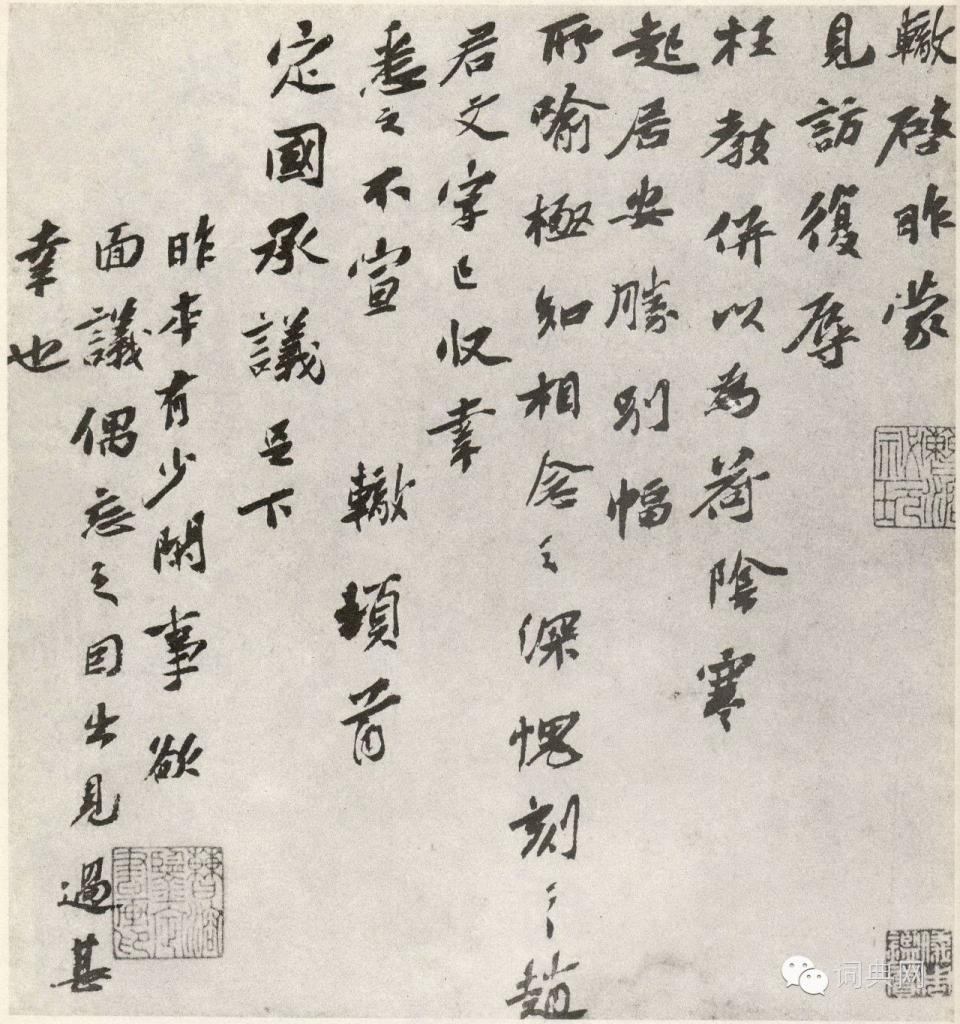 轍啓昨蒙
見訪復辱
枉教併以為荷陰寒
起居安勝別幅
所喻極知相念之深愧刻々趙
君文字已收幸
悉之不宣 轍頓首
定國承議足下
昨本有少閑事欲
面議偶忘之因出見過甚
幸也
词典网